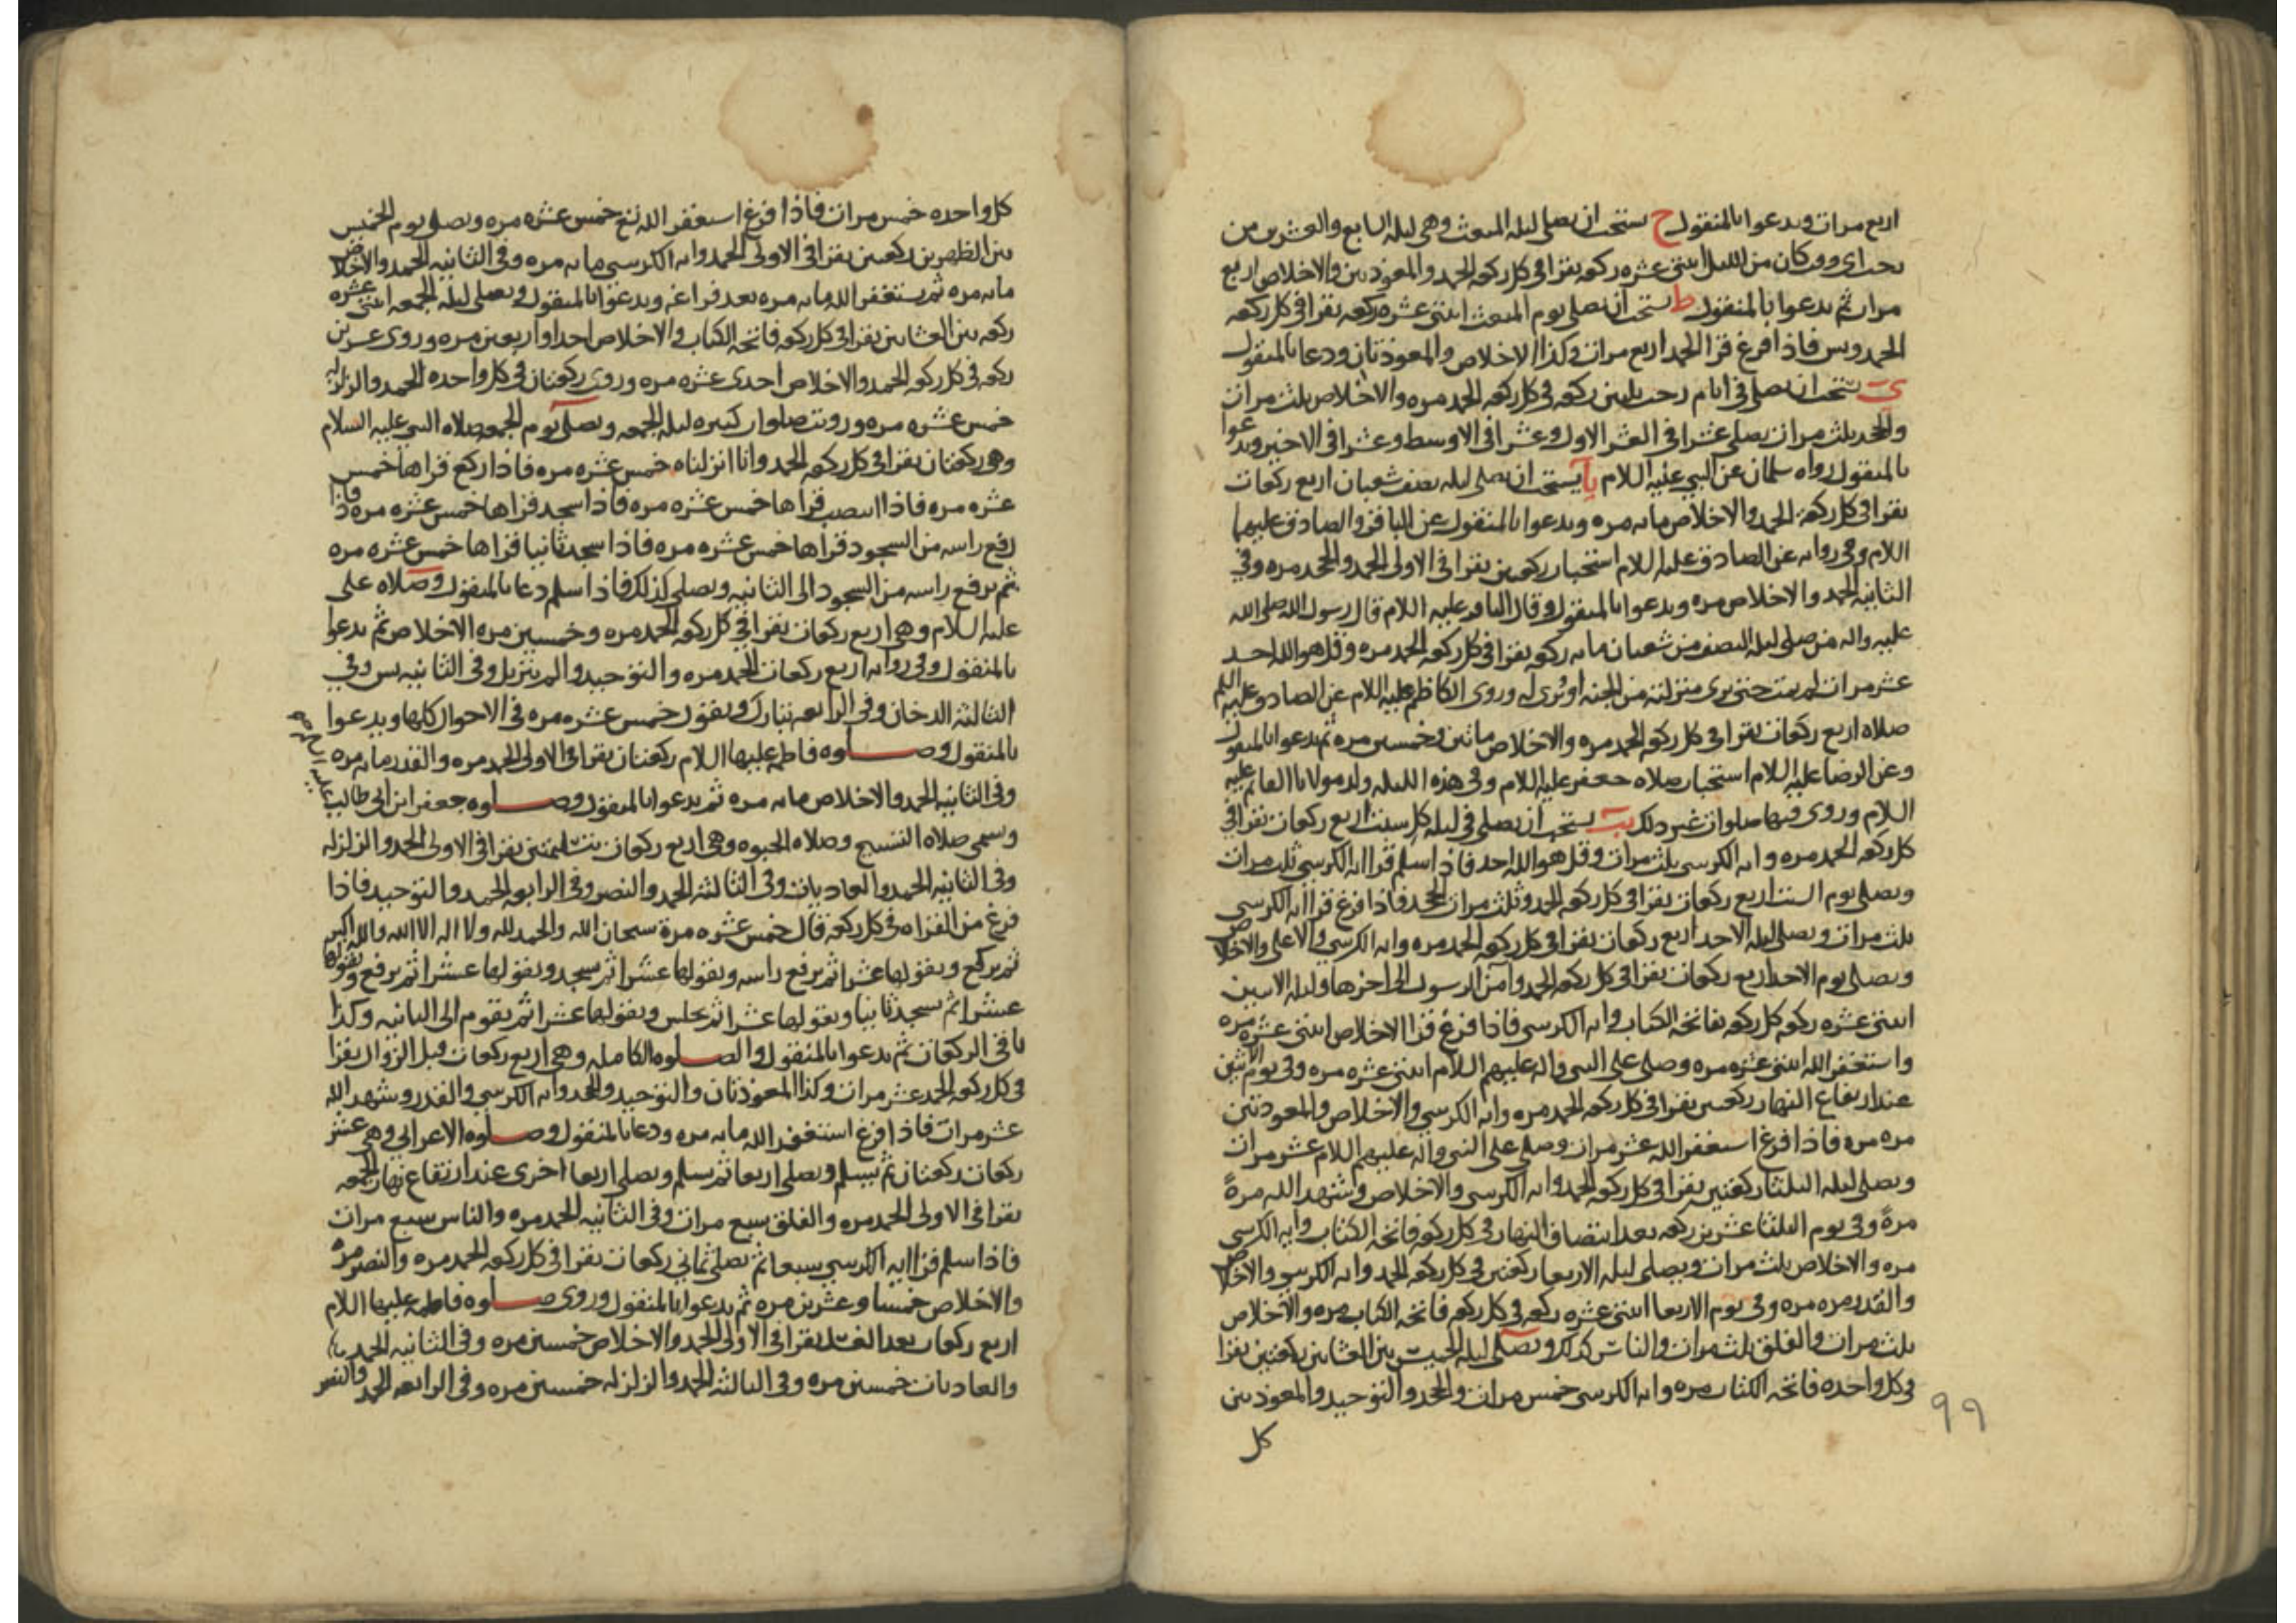 اربع مرات ويدعوا بالمنقول ح يستحب ان يصلي ليله المبعث وهي ليله السابع والعشرين من
رجب اي وقت كان من الليل اثنتي عشره ركعه يقرا في كل ركعه الحمد والمعوذتين والاخلاص اربع
مرات ثم يدعوا بالمنقول ط يستحب ان يصلي يوم المبعث اثنتي عشره ركعه يقرا في كل ركعه
الحمد ويس فاذا فرغ قرا الحمد اربع مرات وكذا الاخلاص والمعوذتان ودعا بالمنقول
ي يستحب ان يصلي في ايام رجب ثلثين ركعه في كل ركعه الحمد مره والاخلاص ثلث مرات
والجحد ثلث مرات يصلي عشرا في العشر الاول وعشرا في الاوسط وعشرا في الاخير ويدعوا
بالمنقول رواه سلمان عن النبي عليه السلام يا يستحب ان يصلي ليله نصف شعبان اربع ركعات
يقرا في كل ركعة الحمد والاخلاص مايه مره ويدعوا بالمنقول عن الباقر والصادق عليهما
السلام وفي روايه عن الصادق عليه السلام استحباب ركعتين يقرا في الاولى الحمد والجحد مره وفي
الثانيه الحمد والاخلاص مره ويدعوا بالمنقول وقال الباقر عليه السلام قال رسول الله صلى الله
عليه واله من صلى ليله النصف من شعبان مايه ركعه يقرا في كل ركعه الحمد مره وقل هو الله احد
عشر مرات لم يمت حتى يرى منزلته من الجنه او تُرى له وروى الكاظم عليه السلام عن الصادق عليه السلم
صلاه اربع ركعات يقرا في كل ركعه الحمد مره والاخلاص ماتين وخمسين مره ثم يدعوا بالمنقول
وعن الرضا عليه السلام استحباب صلاه جعفر عليه السلام وفي هذه الليله ولد مولانا القايم عليه
السلام وروى فيها صلوات غير ذلك يب يستحب ان يصلي في ليله كل سبت اربع ركعات يقرا في
كل ركعه الحمد مره وايه الكرسي ثلث مرات وقل هو الله احد فاذا سلم قرا ايه الكرسي ثلث مرات
ويصلي يوم السبت اربع ركعات يقرا في كل ركعه الحمد وثلث مرات الجحد فاذا فرغ قرا ايه الكرسي
ثلث مرات ويصلي ليله الاحد اربع ركعات يقرا في كل ركعه الحمد مره وايه الكرسي والاعلى والاخلاص
ويصلي يوم الاحد اربع ركعات يقرا في كل ركعه الحمد وآمن الرسول الى اخرها وليله الاثنين
اثنتي عشره ركعه كل ركعه بفاتحه الكتاب وايه الكرسي فاذا فرغ قرا الاخلاص اثنتي عشره مره
واستغفر الله اثنتي عشره مره وصلى على النبي واله عليهم السلام اثنتي عشره مره وفي يوم الاثنين
عند ارتفاع النهار ركعتين يقرا في كل ركعه الحمد مره وايه الكرسي والاخلاص والمعوذتين
مره مره فاذا فرغ استغفر الله عشر مرات وصلى على النبي واله عليهم السلام عشر مرات
ويصلي ليله الثلثا ركعتين يقرا في كل ركعه الحمد وايه الكرسي والاخلاص وشهد الله مرةً
مرةً وفي يوم الثلثا عشرين ركعه بعد انتصاف النهار في كل ركعه فاتحه الكتاب وآيه الكرسي
مره والاخلاص ثلث مرات ويصلي ليله الاربعا ركعتين في كل ركعه الحمد وايه الكرسي والاخلاص
والقدر مره مره وفي يوم الاربعا اثنتي عشره ركعه في كل ركعه فاتحه الكتاب مره والاخلاص
ثلث مرات والفلق ثلث مرات والناس كذلك ويصلي ليله الخميس بين العشائين ركعتين يقرا
في كل واحده فاتحه الكتاب مره وايه الكرسي خمس مرات والجحد والتوحيد والمعوذتين
كل
٩٩
كل واحده خمس مرات فاذا فرغ استغفر الله تع خمس عشره مره ويصلي يوم الخميس
بين الظهرين ركعتين يقرا في الاولى الحمد وايه الكرسي مايه مره وفي الثانيه الحمد والاخلاص
مايه مره ثم يستغفر الله مايه مره بعد فراغه ويدعوا بالمنقول ويصلي ليله الجمعه اثنتي عشره
ركعه بين العشائين يقرا في كل ركعه فاتحه الكتاب والاخلاص احدا واربعين مره وروى عشرين
ركعه في كل ركعه الحمد والاخلاص احدى عشره مره وروى ركعتان في كل واحده الحمد والزلزله
خمس عشره مره ورويت صلوات كثيره ليله الجمعه ويصلي يوم الجمعه صلاه النبي عليه السلام
وهي ركعتان يقرا في كل ركعه الحمد وانا انزلناه خمس عشره مره فاذا ركع قراها خمس
عشره مره فاذا انتصب قراها خمس عشره مره فاذا سجد قراها خمس عشره مره فاذا
رفع راسه من السجود قراها خمس عشره مره فاذا سجد ثانيا قراها خمس عشره مره
ثم يرفع راسه من السجود الى الثانيه ويصلي كذلك فاذا سلم دعا بالمنقول وصلاه علي
عليه السلام وهي اربع ركعات يقرا في كل ركعه الحمد مره وخمسين مره الاخلاص ثم يدعوا
بالمنقول وفي روايه اربع ركعات الحمد مره والتوحيد والم تنزيل وفي الثانيه يس وفي
الثالثه الدخان وفي الرابعه تبارك ويقول خمس عشره مره في الاحوال كلها ويدعوا
بالمنقول وصلوه فاطمه عليها السلام ركعتان يقرا في الاولى الحمد مره والقدر مايه مره
وفي الثانيه الحمد والاخلاص مايه مره ثم يدعوا بالمنقول وصلوه جعفر ابن ابي طالب
وتسمى صلاه التسبيح وصلاه الحبوه وهي اربع ركعات بتسليمتين يقرا في الاولى الحمد والزلزله
وفي الثانيه الحمد والعاديات وفي الثالثه الحمد والنصر وفي الرابعه الحمد والتوحيد فاذا
فرغ من القراه في كل ركعه قال خمس عشره مرة سبحان الله والحمد لله ولا اله الا الله والله اكبر
ثم يركع ويقولها عشرا ثم يرفع راسه ويقولها عشرا ثم يسجد ويقولها عشرا ثم يرفع ويقولها
عشرا ثم يسجد ثانيا ويقولها عشرا ثم يجلس ويقولها عشرا ثم يقوم الى الثانيه وكذا
باقي الركعات ثم يدعوا بالمنقول والصلوه الكامله وهي اربع ركعات قبل الزوال يقرا
في كل ركعه الحمد عشر مرات وكذا المعوذتان والتوحيد والجحد وايه الكرسي والقدر وشهد الله
عشر مرات فاذا فرغ استغفر الله مايه مره ودعا بالمنقول وصلوه الاعرابي وهي عشر
ركعات ركعتان ثم يسلم ويصلي اربعا ثم يسلم ويصلي اربعا اخرى عند ارتفاع نهار الجمعه
يقرا في الاولى الحمد مره والفلق سبع مرات وفي الثانيه الحمد مره والناس سبع مرات
فاذا سلم قرا ايه الكرسي سبعا ثم يصلي ثماني ركعات يقرا في كل ركعه الحمد مره والنصر مره
والاخلاص خمسا وعشرين مره ثم يدعوا بالمنقول وروى صلوه فاطمه عليها السلام
اربع ركعات بعد الغسل يقرا في الاولى الحمد والاخلاص خمسين مره وفي الثانيه الحمد
والعاديات خمسين مره وفي الثالثه الحمد والزلزله خمسين مره وفي الرابعه الحمد والنصر